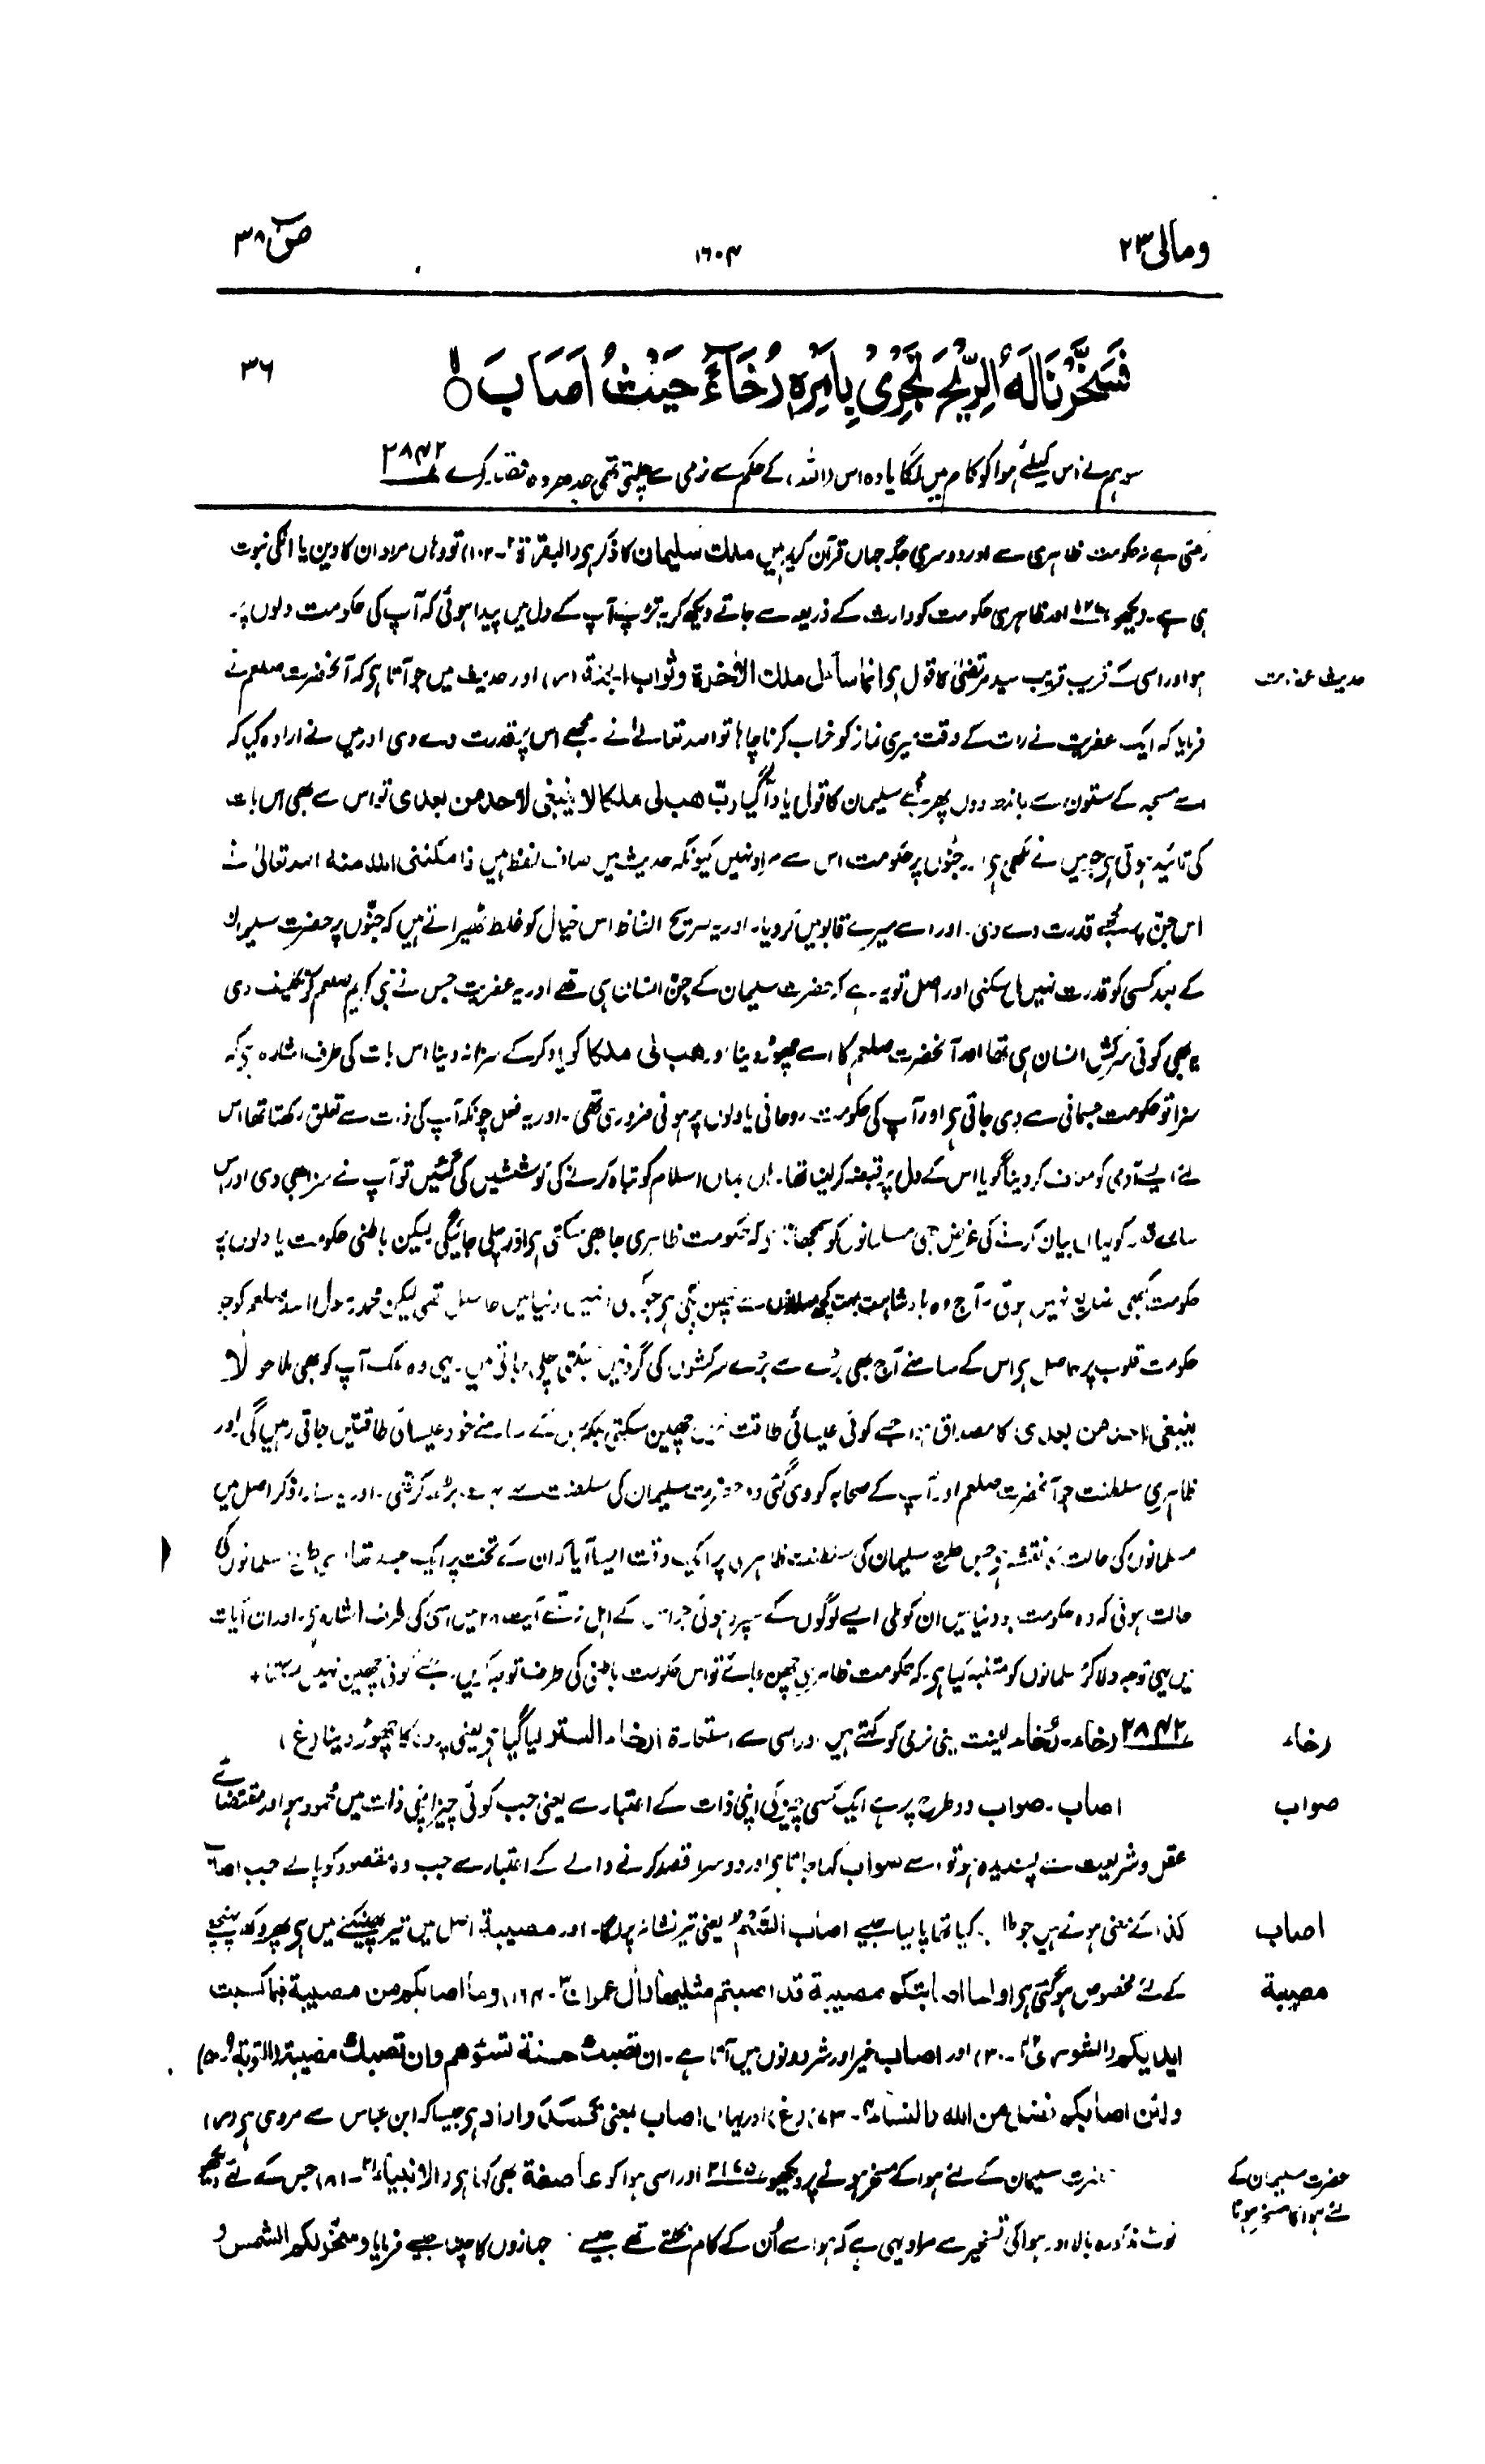 ومالی ۲۳
۱۶۰۴
ص ۳۸
فَسَخَّرْنَا لَهُ الرِّيْحَ تَجْرِيْ بِاَمْرِهٖ رُخَآءً حَيْثُ اَصَابَ ۝
۳۶
سو ہم نے اس کیلئے ہوا کو کام میں لگایا وہ اس (اللہ) کے حکم سے نرمی سے چلتی تھی جدھر وہ قصد کرے ۲۸۴۲
ہے نہ حکومت ظاہری سے اور دوسری جگہ جہاں قرآن کریم میں ملک سلیمان کا ذکر ہی (البقرۃ ۲-۱۰۲) تو وہاں مراد ان کا دین یا انکی نبوت
ہی ہے۔ دیکھو اور ظاہری حکومت کو وارث کے ذریعہ سے جاتے دیکھ کر یہ تڑپ آپ کے دل میں پیدا ہوئی کہ آپ کی حکومت دلوں پر
حدیث عفریت
ہو اور اسی کے قریب قریب سید مرتضیٰ کا قول ہی انما سأل ملك الاٰخرة وثواب الجنة (ر) اور حدیث میں جو آتا ہی کہ آنحضرت صلعم نے
فرمایا کہ ایک عفریت نے رات کے وقت میری نماز کو خراب کرنا چاہا تو اللہ تعالیٰ نے مجھے اس پر قدرت دے دی اور میں نے ارادہ کیا کہ
اسے مسجد کے ستون سے باندھ دوں پھر مجھے سلیمان کا قول یاد آگیا ربّ هب لی ملکا لا ینبغی لاحد من بعدی تو اس سے بھی اس بات
کی تائید ہوتی ہی جو میں نے لکھی ہی۔ جنّوں پر حکومت اس سے مراد نہیں کیونکہ حدیث میں صاف لفظ ہیں فامکننی الله منه اللہ تعالیٰ نے
اس جنّ پر مجھے قدرت دے دی۔ اور اسے میرے قابو میں کر دیا۔ اور یہ صریح الفاظ اس خیال کو غلط ٹھیراتے ہیں کہ جنّوں پر حضرت سلیمان
کے بعد کسی کو قدرت نہیں مل سکتی اور اصل تو یہ ہے کہ حضرت سلیمان کے جن انسان ہی تھے اور یہ عفریت جس نے نبی کریم صلعم کو تکلیف دی
یہ بھی کوئی سرکش انسان ہی تھا اور آنحضرت صلعم کا اسے چھوڑ دینا اور هب لی ملکا کو یاد کر کے سزا نہ دینا اس بات کی طرف اشارہ ہی کہ
سزا تو حکومت جسمانی سے دی جاتی ہی اور آپ کی حکومت روحانی یا دلوں پر ہونی ضروری تھی۔ اور یہ فعل چونکہ آپ کی ذات سے تعلق رکھتا تھا اس
لئے ایسے آدمی کو معاف کر دینا گویا اس کے دل پر قبضہ کر لینا تھا۔ ہاں جہاں اسلام کو تباہ کرنے کی کوششیں کی گئیں تو آپ نے سزا بھی دی اور اس
سارے قصہ کو یہاں بیان کرنے کی غرض بھی مسلمانوں کو سمجھانا ہی کہ حکومت ظاہری جا بھی سکتی ہی اور چلی جائیگی لیکن باطنی حکومت یا دلوں پر
حکومت کبھی ضایع نہیں ہوتی۔ آج وہ بادشاہت بہت کچھ مسلمانوں سے چھن چکی ہی جو انہیں دنیا میں حاصل تھی لیکن محمد رسول اللہ صلعم کو جو
حکومت قلوب پر حاصل ہی اس کے سامنے آج بھی بڑے سے بڑے سرکشوں کی گردنیں جھکتی چلی جاتی ہیں۔ یہی وہ ملک آپ کو بھی ملا جو لا
ینبغی لاحد من بعدی کا مصداق ہی جسے کوئی عیسائی طاقت نہیں چھین سکتی بلکہ اس کے سامنے خود عیسائی طاقتیں جاتی رہیں گی اور
ظاہری سلطنت جو آنحضرت صلعم اور آپ کے صحابہ کو دی گئی وہ حضرت سلیمان کی سلطنت سے بہت بڑھ کر تھی۔ اور یہ سارا ذکر اصل میں
مسلمانوں کی حالت کا نقشہ ہی جس طرح سلیمان کی سلطنت ظاہری پر ایک وقت ایسا آیا کہ ان کے تخت پر ایک جسد تھا اسی طرح مسلمانوں کی
حالت ہوئی کہ وہ حکومت جو دنیا میں ان کو ملی ایسے لوگوں کے سپرد ہوئی جو اس کے اہل نہ تھے آیت ۲۸ میں اسی کی طرف اشارہ ہی۔ اور ان آیات
میں یہی توجہ دلا کر مسلمانوں کو متنبہ کیا ہی کہ حکومت ظاہری چھن جائے تو اس حکومت باطنی کی طرف توجہ کریں جسے کوئی چھین نہیں سکتا +
رخاء
۲۸۴۲ رخاء۔ رُخاء لینت یعنی نرمی کو کہتے ہیں اور اسی سے استعارۃ ارخاء الستر لیا گیا ہی یعنی پردہ کا چھوڑ دینا (غ)
صواب
اصاب۔ صواب دو طرح پر ہے ایک کسی چیز کی اپنی ذات کے اعتبار سے یعنی جب کوئی چیز اپنی ذات میں محمود ہو اور مقتضائے
عقل و شریعت سے پسندیدہ ہو تو اسے صواب کہا جاتا ہی اور دوسرا قصد کرنے والے کے اعتبار سے جب وہ مقصود کو پالے جب اصاب
اصاب
کذا کے معنی ہوتے ہیں جو طلب کیا تھا پا لیا جیسے اصاب السَّهْم یعنی تیر نشانہ پر لگا۔ اور مصیبة اصل میں تیر پھینکنے میں ہی پھر دکھ پہنچنے
مصیبة
کے لئے مخصوص ہو گئی ہی اولما اصابتکم مصیبة قد اصبتم مثلیها (اٰل عمران ۳-۱۶۴) وما اصابکم من مصیبة فبما کسبت
ایدیکم (الشوریٰ ۴۲-۳۰) اور اصاب خیر اور شر دونوں میں آتا ہے۔ ان تصبك حسنة تسؤهم وان تصبك مصیبة (التوبة ۹-۵۰)
ولئن اصابکم فضل من الله (النساء ۴-۷۳) (غ) اور یہاں اصاب بمعنی قصد و اراد ہی جیسا کہ ابن عباس سے مروی ہی (ر)
حضرت سلیمان کے لئے ہوا کا مسخر ہونا
حضرت سلیمان کے لئے ہوا کے مسخر ہونے پر دیکھو ۲۱۶۵ اور اسی ہوا کو عاصفة بھی کہا ہی (الانبیاء ۲۱-۸۱) جس کے لئے دیکھو
نوٹ مذکورہ بالا اور ہوا کی تسخیر سے مراد یہی ہے کہ ہوا سے اُن کے کام نکلتے تھے جیسے جہازوں کا چلنا جیسے فرمایا وسخّر لکم الشمس و